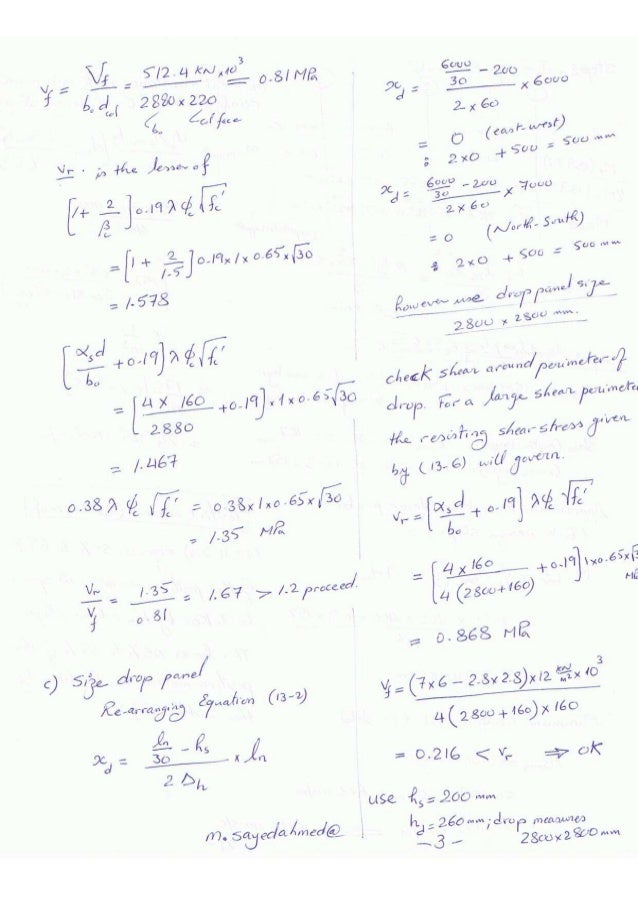 v_f = V_f / b_o d_col = 512.4 kN x10^3 / 2880 x 220 = 0.81 MPa
b_o col face
v_r . is the lesser of
[1 + 2/β_c] 0.19 λ ϕ_c √f_c'
= [1 + 2/1.5] 0.19 x 1 x 0.65 x √30
= 1.578
[α_s d / b_o + 0.19] λ ϕ_c √f_c'
= [4 x 160 / 2880 + 0.19] x 1 x 0.65 √30
= 1.467
0.38 λ ϕ_c √f_c' = 0.38 x 1 x 0.65 x √30
= 1.35 MPa
v_r / v_f = 1.35 / 0.81 = 1.67 > 1.2 proceed.
c) Size drop panel
Re-arranging Equation (13-2)
x_d = (l_n/30 - h_s) / 2 Δ_h x l_n
m. sayedahmed@
x_d = (6000/30 - 200) / 2 x 60 x 6000
= 0 (east-west)
: 2x0 + 500 = 500 mm
x_d = (6000/30 - 200) / 2 x 60 x 7000
= 0 (North-South)
: 2x0 + 500 = 500 mm
however use drop panel size
2800 x 2800 mm.
check shear around perimeter of
drop. For a large shear perimete
the resisting shear stress given
by (13-6) will govern.
v_r = [α_s d / b_o + 0.19] λ ϕ_c √f_c'
= [4 x 160 / 4 (2800+160) + 0.19] 1x0.65x√3
= 0.868 MPa
v_f = (7x6 - 2.8x2.8) x 12 kN/m² x 10^3 / 4 (2800 + 160) x 160
= 0.216 < v_r ⇒ OK
use h_s = 200 mm
h_d = 260 mm; drop measures
- 3 - 2800x2800 mm